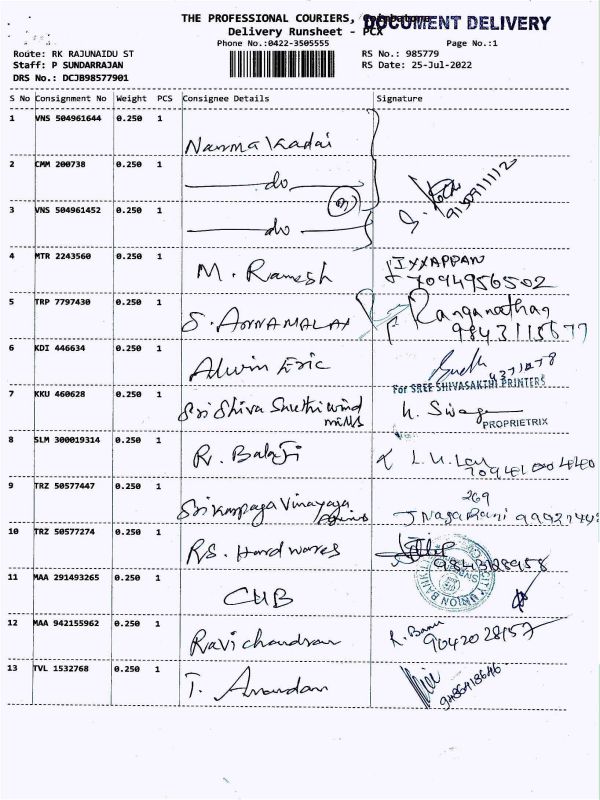 THE PROFESSIONAL COURIERS, Coimbatore
DOCUMENT DELIVERY
Delivery Runsheet - PCX
Phone No.:0422-3505555
Page No.:1
Route: RK RAJUNAIDU ST
RS No.: 985779
Staff: P SUNDARRAJAN
RS Date: 25-Jul-2022
DRS No.: DCJB98577901
S No Consignment No Weight PCS Consignee Details Signature
1 VNS 504961644 0.250 1 Namma Kadai
2 CMM 200738 0.250 1 do
3 VNS 504961452 0.250 1 do
4 MTR 2243560 0.250 1 M. Ramesh IYYAPPAN
7094956502
5 TRP 7797430 0.250 1 S. ANNAMALAI Ranganathan
6 KDI 446634 0.250 1 Alwin Eric
For SREE SHIVASAKTHI PRINTERS
7 KKU 460628 0.250 1 Sri Shiva Shakthi wind
mills
PROPRIETRIX
8 SLM 300019314 0.250 1 R. Balaji
9 TRZ 50577447 0.250 1 Sri Karpaga Vinayaga
269
J. Nagamani
10 TRZ 50577274 0.250 1 RS. Hardwares
CITY UNION BANK
11 MAA 291493265 0.250 1 CUB
12 MAA 942155962 0.250 1 Ravichandran R. Banu
13 TVL 1532768 0.250 1 T. Anandan
9486418646